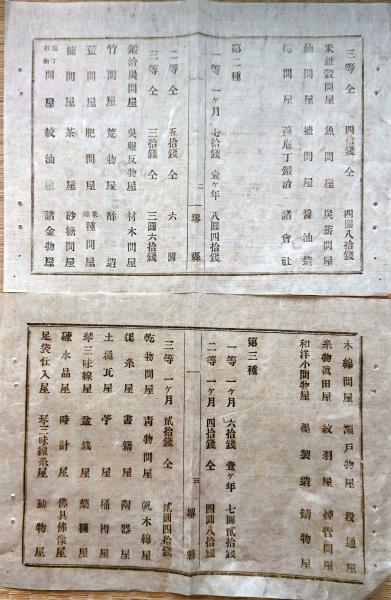 三等 仝 四拾錢 仝 四圓八拾錢
米雜穀問屋 魚問屋 炭薪問屋
油問屋 塩問屋 醤油造
問屋 庖丁鍛冶 諸會社
第二種
一等 一ヶ月 七拾錢 壹ヶ年 八圓四拾錢
二 堺縣
二等 仝 五拾錢 仝 六圓
三等 仝 三拾錢 仝 三圓六拾錢
鍛冶炭問屋 吳服反物屋 材木問屋
竹問屋 荒物屋 酢造
藍問屋 肥問屋 菜種問屋
問屋 茶屋 砂糖問屋
庖丁 問屋 絞油屋 諸金物屋
木綿問屋 瀬戸物屋 段通屋
糸物眞田屋 紋羽屋 煙管問屋
和洋小間物屋 製造 鑄物屋
第三種
一等 一ヶ月 六拾錢 壹ヶ年 七圓貳拾錢
二等 一ヶ月 四拾錢 仝 四圓八拾錢
三 堺縣
三等 一ヶ月 貳拾錢 仝 貳圓四拾錢
乾物問屋 青物問屋 帆木綿屋
糸屋 書籍屋 陶器屋
土樋瓦屋 屋 桶樽屋
琴三味線屋 盆栽屋 藥種屋
硝水品屋 時計屋 佛具佛像屋
足袋仕入屋 琴三味線糸屋 動物屋